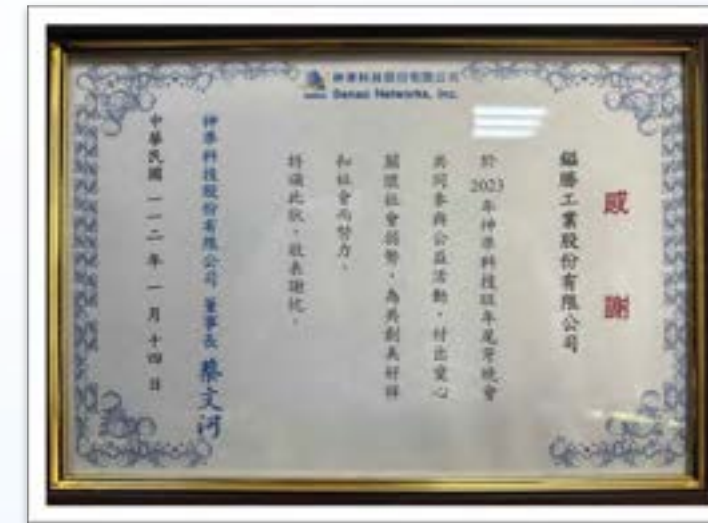 神準科技股份有限公司
Senao Networks, Inc.
感謝
鎰勝工業股份有限公司
於2023年神準科技旺年尾牙晚會
共同參與公益活動,付出愛心
關懷社會弱勢,為共創美好祥
和社會而努力。
特頒此狀,敬表謝忱。
神準科技股份有限公司 董事長 蔡文河
中華民國一一二年一月十四日